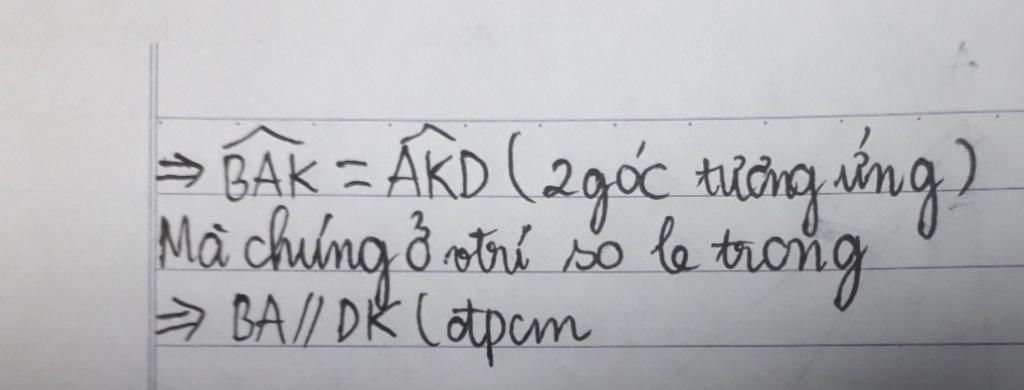 ⇒ \widehat{BAK} = \widehat{AKD} (2 góc tương ứng)
Mà chúng ở vtrí so le trong
⇒ BA // DK (đpcm